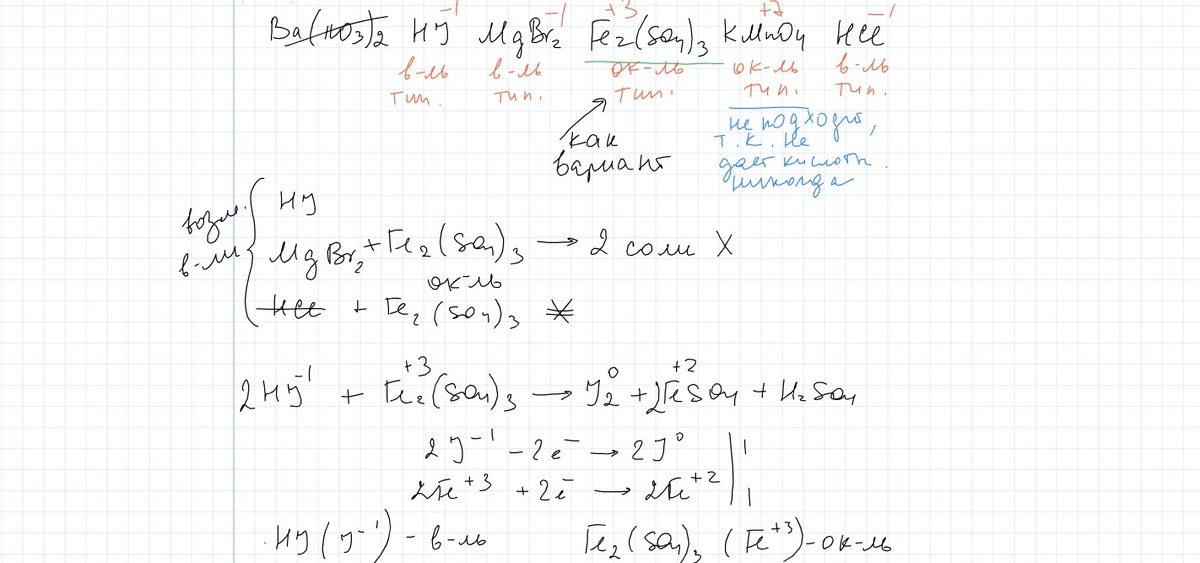 -1 -1 +3 +7 -1
Ba(NO₃)₂ HJ MgBr₂ Fe₂(SO₄)₃ KMnO₄ HCl
в-ль в-ль ок-ль ок-ль в-ль
тип. тип. тип. тип. тип.
как
вариант
не подходит,
т.к. не
дает кислоты
никогда
возм.
в-ли
HJ
MgBr₂ + Fe₂(SO₄)₃ → 2 соли X
ок-ль
HCl + Fe₂(SO₄)₃
2HJ⁻¹ + Fe₂⁺³(SO₄)₃ → J₂⁰ + 2Fe⁺²SO₄ + H₂SO₄
2J⁻¹ - 2e⁻ → 2J⁰ | 1
2Fe⁺³ + 2e⁻ → 2Fe⁺² | 1
HJ (J⁻¹) - в-ль Fe₂(SO₄)₃ (Fe⁺³) - ок-ль